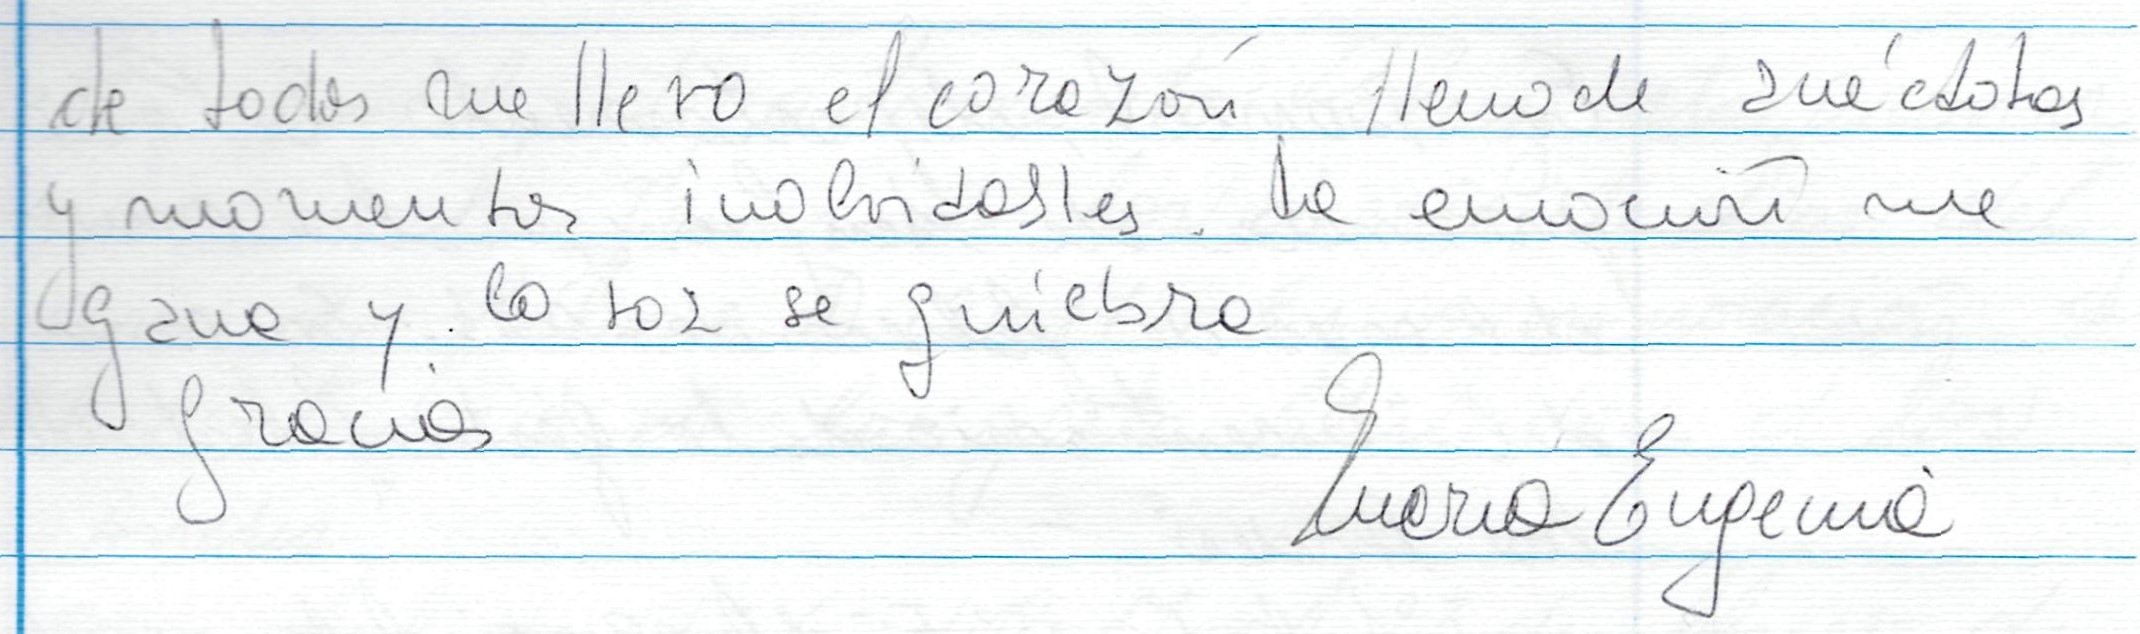 de todos me llevo el corazón lleno de anéctotas
y momentos inolvidables. La emoción me
gana y la voz se quiebra
gracias
María Eugenia